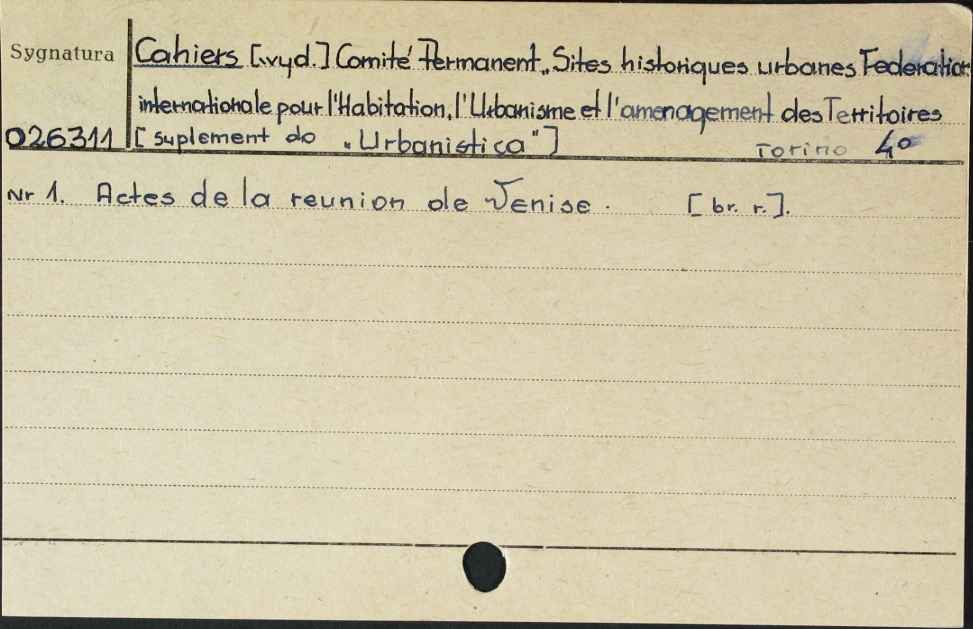 Sygnatura Cahiers [wyd.] Comité Permanent „Sites historiques urbanes Federation
internationale pour l'Habitation, l'Urbanisme et l'amenagement des Territoires
026311 [suplement do „Urbanistica"] Torino 4°
Nr 1. Actes de la reunion de Venise. [br. r.].